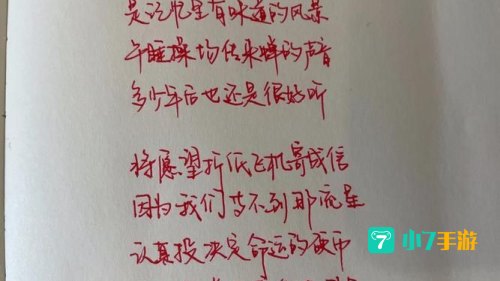 是记忆里有味道的风景
午睡操场传来蝉的声音
多少年后也还是很好听
将愿望折低飞机寄成信
因为我们等不到那流星
认真投决定命运的硬币
小7手游